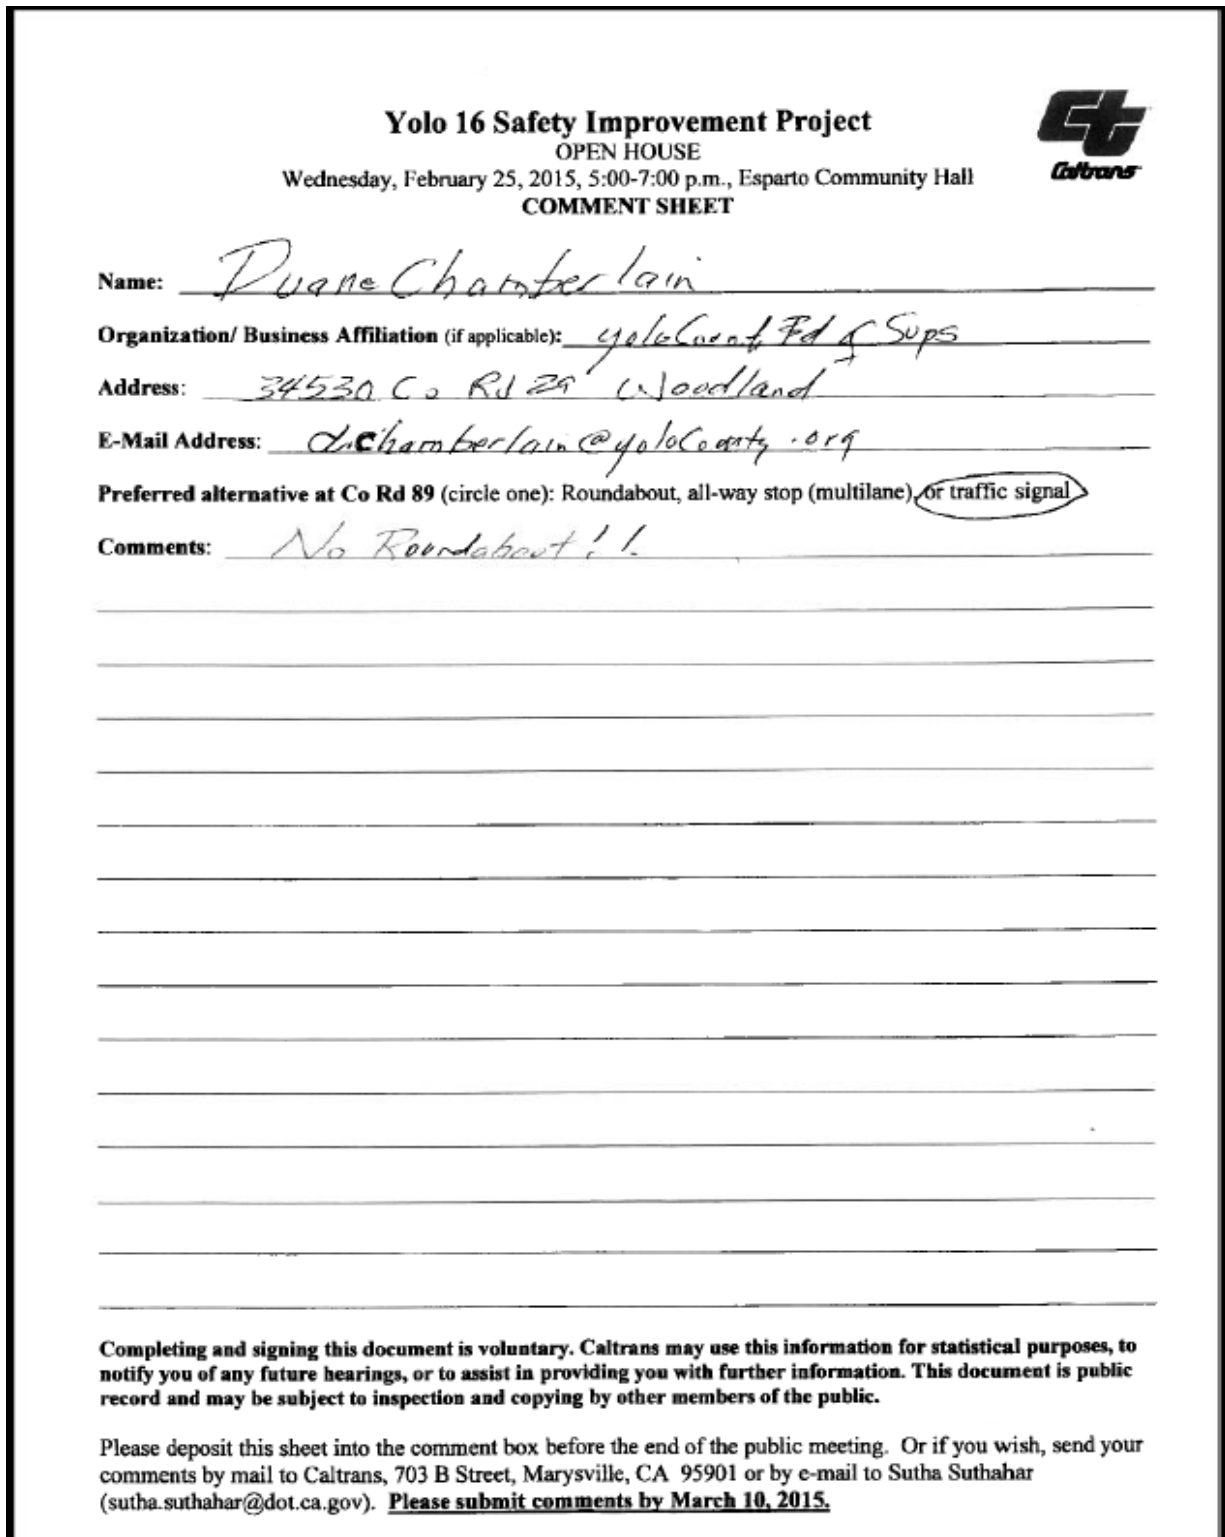 Yolo 16 Safety Improvement Project
OPEN HOUSE
Wednesday, February 25, 2015, 5:00-7:00 p.m., Esparto Community Hall
COMMENT SHEET
Caltrans
Name: Duane Chamberlain
Organization/ Business Affiliation (if applicable): Yolo County Bd of Sups
Address: 34530 Co Rd 29 Woodland
E-Mail Address: d.chamberlain@yoloCounty.org
Preferred alternative at Co Rd 89 (circle one): Roundabout, all-way stop (multilane), or traffic signal
Comments: No Roundabout!!
Completing and signing this document is voluntary. Caltrans may use this information for statistical purposes, to
notify you of any future hearings, or to assist in providing you with further information. This document is public
record and may be subject to inspection and copying by other members of the public.
Please deposit this sheet into the comment box before the end of the public meeting. Or if you wish, send your
comments by mail to Caltrans, 703 B Street, Marysville, CA 95901 or by e-mail to Sutha Suthahar
(sutha.suthahar@dot.ca.gov). Please submit comments by March 10, 2015.